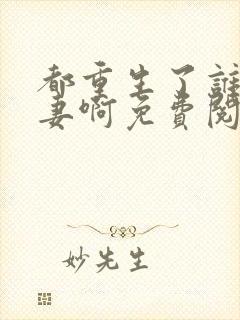 都重生了誰
妻啊免費閱
妙先生